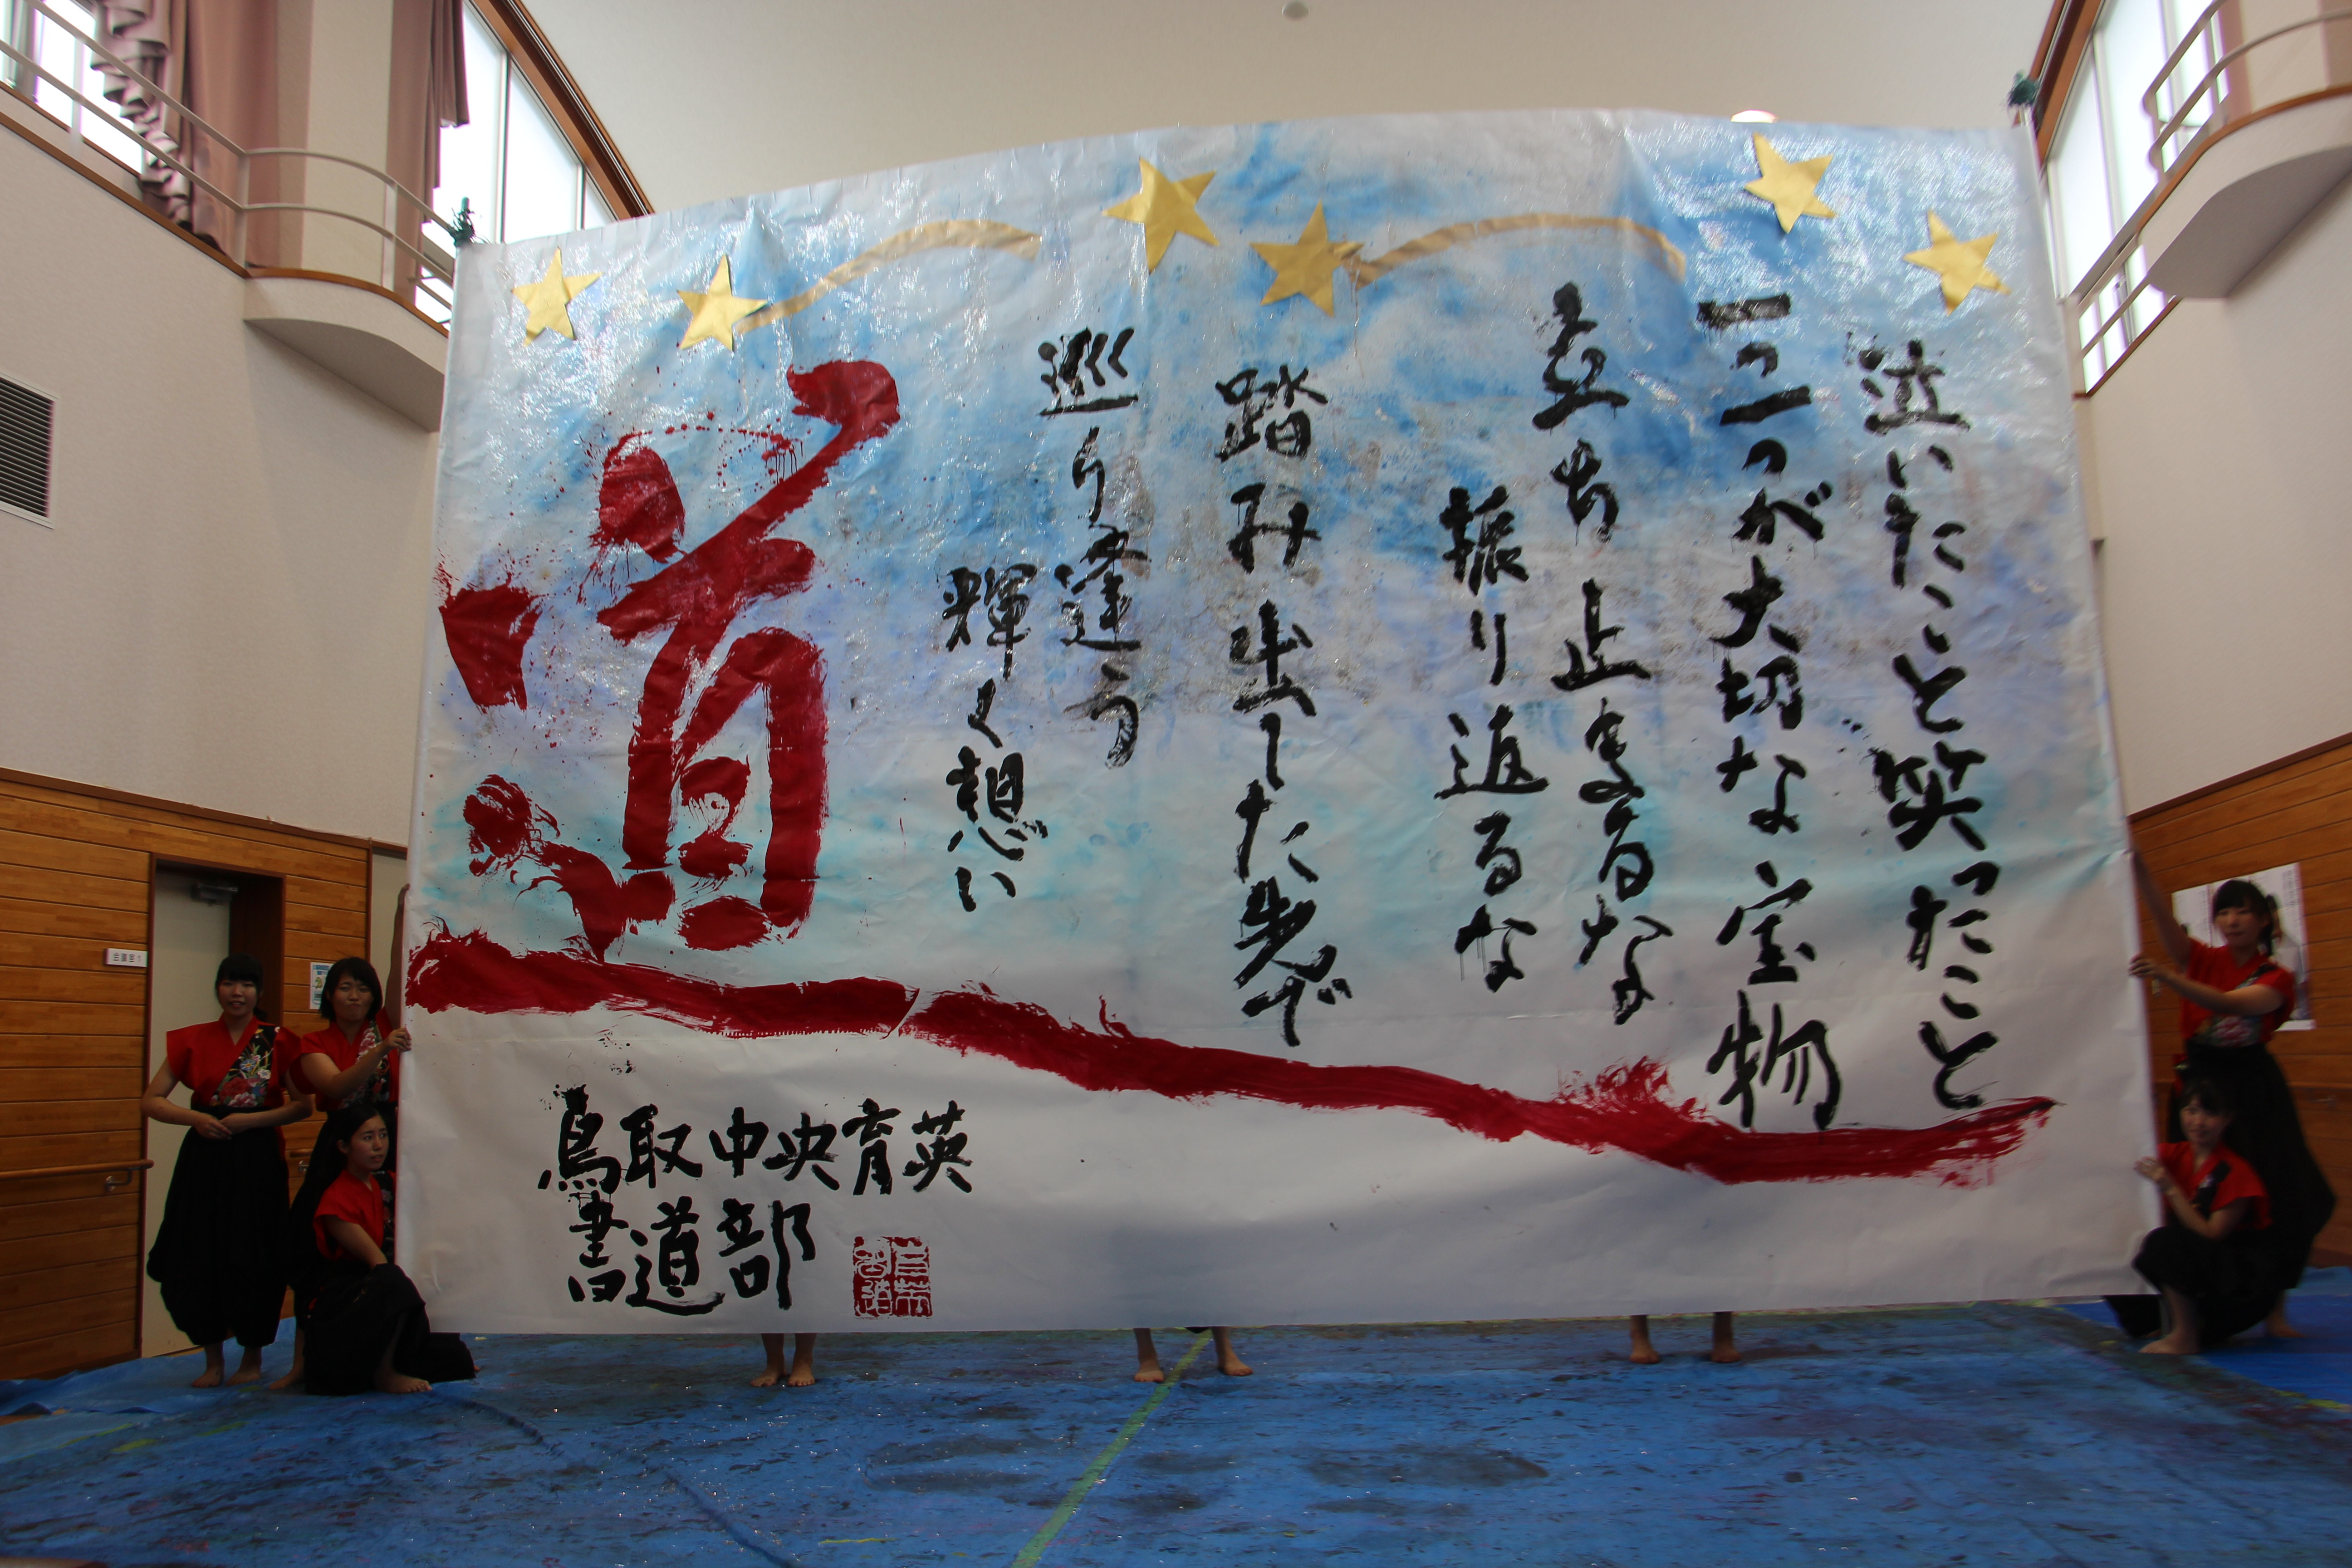 泣いたこと笑ったこと
一つ一つが大切な宝物
立ち止まるな
振り返るな
踏み出した先で
巡り逢う
輝く想い
道
鳥取中央育英
書道部
会議室1